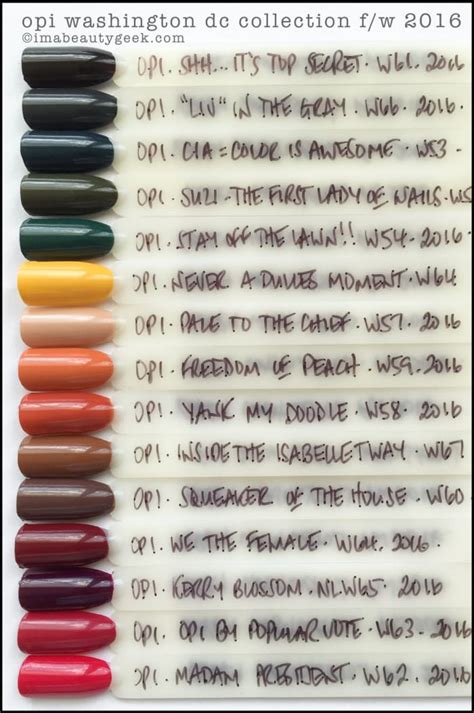 opi washington dc collection f/w 2016
©imabeautygeek.com
OPI · SHH... IT'S TOP SECRET · W61 · 2016
OPI · "LIV" IN THE GRAY · W66 · 2016
OPI · CIA = COLOR IS AWESOME · W53 ·
OPI · SUZI - THE FIRST LADY OF NAILS · W5
OPI · STAY OFF THE LAWN!! W54 · 2016
OPI · NEVER A DULLES MOMENT · W64
OPI · PALE TO THE CHIEF · W57 · 2016
OPI · FREEDOM OF PEACH · W59 · 2016
OPI · YANK MY DOODLE · W58 · 2016
OPI · INSIDE THE ISABELLETWAY · W67
OPI · SQUEAKER OF THE HOUSE · W60
OPI · WE THE FEMALE · W64 · 2016 ·
OPI · KERRY BLOSSOM · NLW65 · 2016
OPI · OPI BY POPULAR VOTE · W63 · 2016
OPI · MADAM PRESIDENT · W62 · 2016